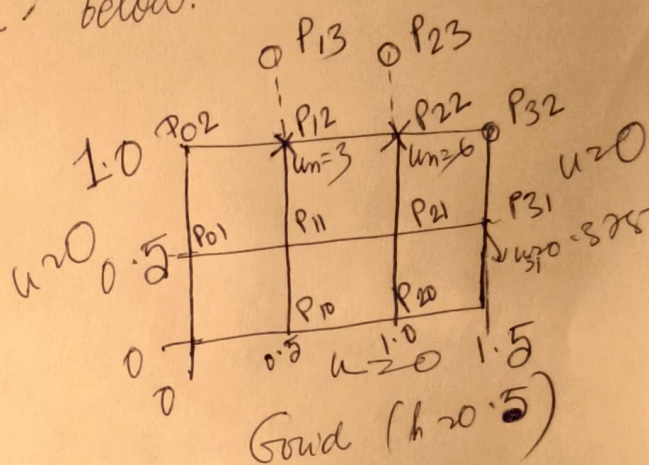 below.
P13 P23
P02 P12 P22 P32
1.0 un=3 un=6 u=0
P01 P11 P21 P31
u=0 0.5
P10 P20
0 0.5 1.0 1.5
0 u=0
Grid (h=0.5)